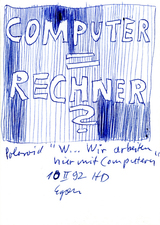 COMPUTER
=
RECHNER
?
Polaroid "W... Wir arbeiten
hier mit Computern"
10 II 92 HD